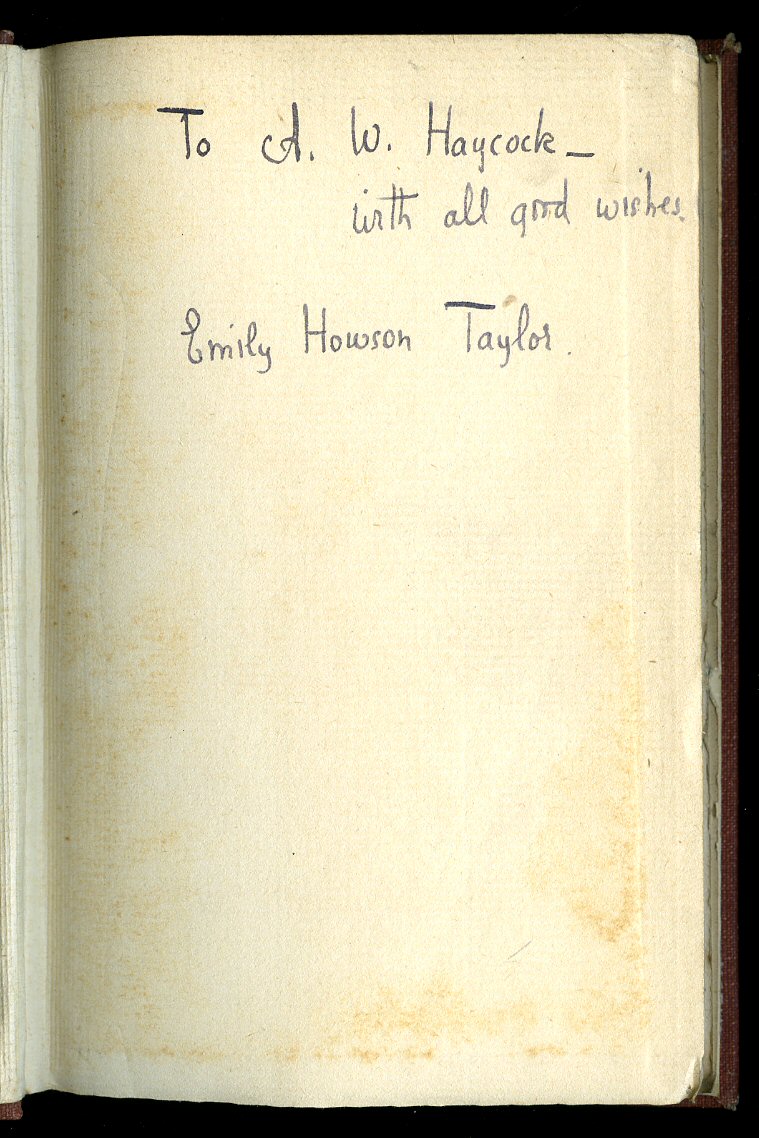 To A. W. Haycock —
with all good wishes.
Emily Howson Taylor.